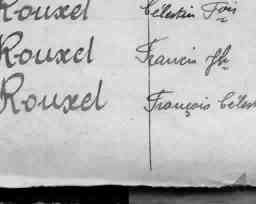 Rouxel Célestin Fois
Rouxel Francis Jh
Rouxel François Célest